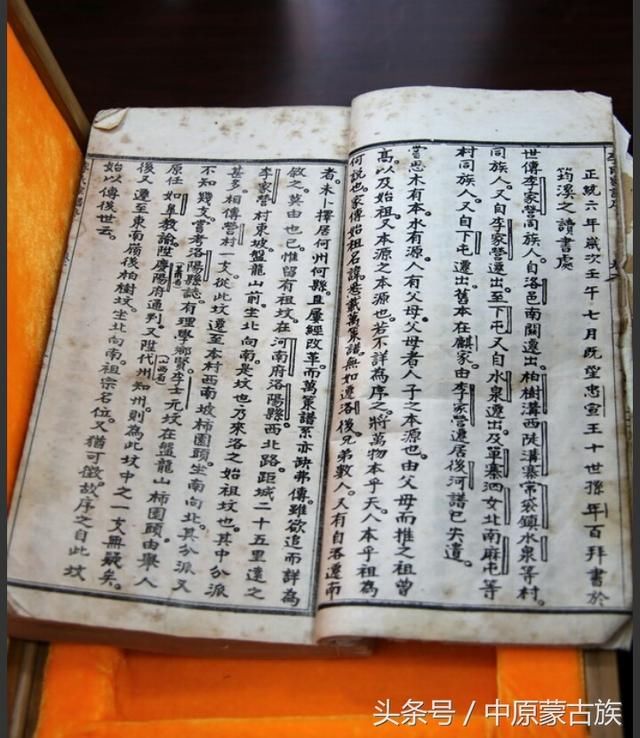 正統六年歲次壬午七月既望忠宣王十世孫年百拜書於
筠溪之讀書處
世傳李家營同族人自洛邑南關遷出柏樹溝西陡溝寨常袋鎮水泉等村。
同族人。又自李家營遷出至下屯又自水泉遷出及軍寨泗女北南麻屯等
村同族人。又自下屯遷出舊本在麒家由李家營遷居後河譜已失遺。
嘗思木有本水有源人有父母父母者人子之本源也。由父母而推之祖曾
高以及始祖又本源之本源也若不詳為序之將萬物本乎天人本乎祖為
何說也家傳始祖名諱悉載萬策譜無如遷洛後兄弟數人。又有自洛遷南
者。未卜擇居何州何縣且屢經改革而萬策譜系亦缺弗傳雖欲追而詳為
敘之莫由也已惟留有祖坟在河南府洛陽縣西北路距城二十五里遠之
李家營村東坡盤龍山前坐北向南是坟也乃來洛之始祖坟也其中分派
甚多。相傳營村一支從此坟遷至本村西南坡柿園頭坐南向北其分派又
不知幾支嘗考洛陽縣誌有理學鄉賢李士元坟在盤龍山柿園頭由舉人
原任如皐教諭陞慶陽府通判又陞代州(山西省)知州則為此坟中之一支無疑矣。
後又遷至東南嶺後柏樹坟坐北向南。祖宗名位又猶可徵故序之自此坟
始以傳後世云。
头条号 / 中原蒙古族